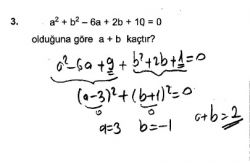 3. a² + b² – 6a + 2b + 10 = 0
olduğuna göre a + b kaçtır?
a²-6a+9 + b²+2b+1=0
(a-3)² + (b+1)² = 0
0 0
a=3 b=-1 a+b=2